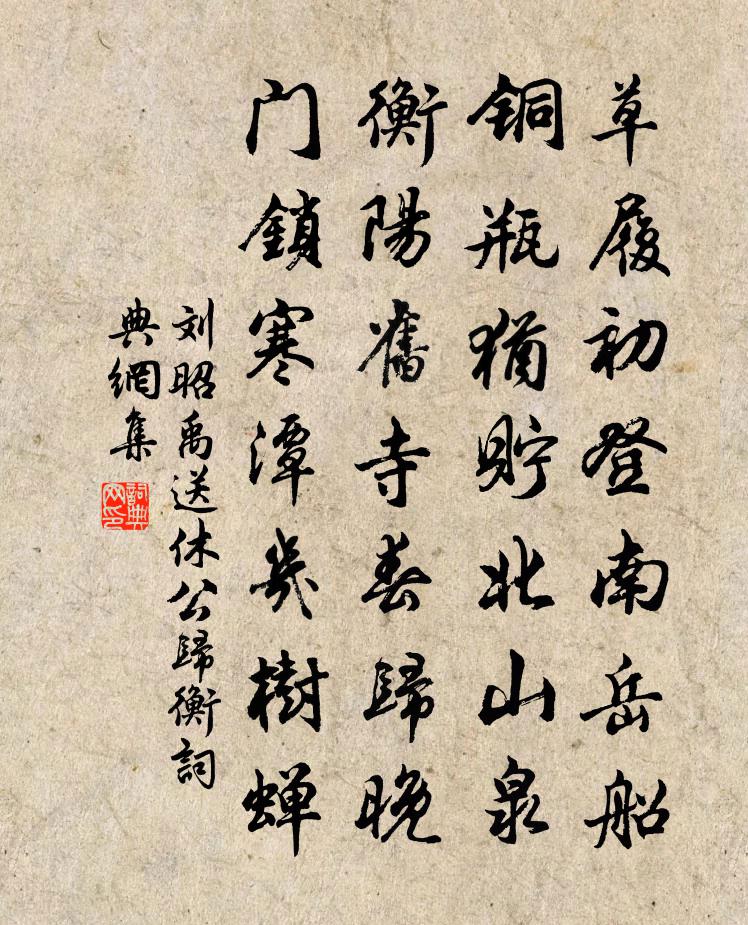 草履初登南岳船
铜瓶猶貯北山泉
衡陽舊寺春歸晚
门鎖寒潭幾樹蝉
刘昭禹送休公歸衡詞
典網集
詞典网印